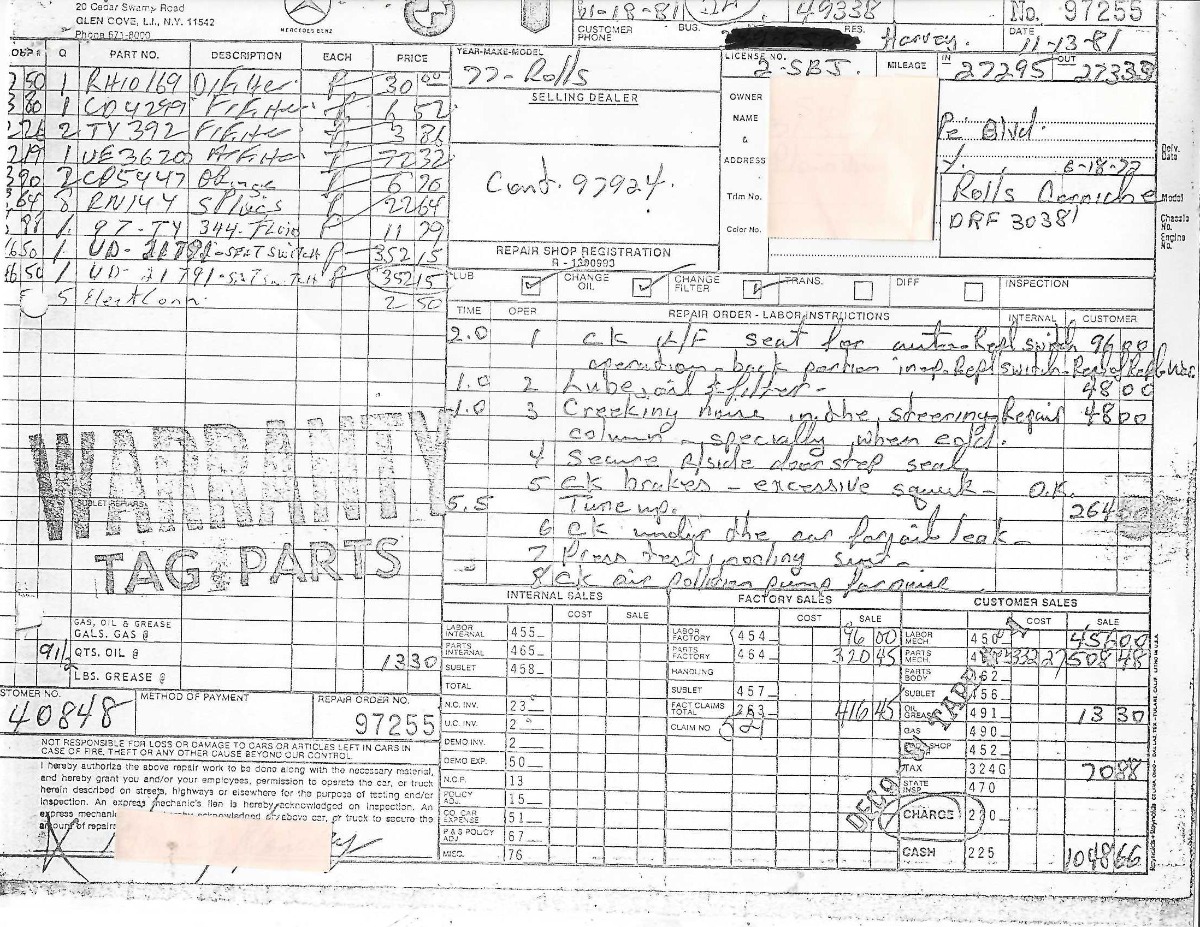 20 Cedar Swamp Road
GLEN COVE, L.I., N.Y. 11542
Phone 671-8000
MERCEDES BENZ
11-18-81
49338
No. 97255
CUSTOMER PHONE
BUS.
RES.
Harvey.
DATE
11-13-81
Q PART NO. DESCRIPTION EACH PRICE
1 RH10169 O/Filter 30 00
1 CD4299 F/Filter 6 52
2 TY392 F/Filter 3 86
1 UE3620 A/Filter 72 32
2 CD5447 O Rings 6 76
8 RN144 S Plugs 22 64
1 97-TY 344-Fluid 11 29
1 UD-21791-SEAT SWITCH P 352 15
1 UD-21791-Seat Switch P 352 15
5 Elect Conn. 2 50
YEAR-MAKE-MODEL
77-Rolls
SELLING DEALER
Cont. 97924.
REPAIR SHOP REGISTRATION
R - 1300993
LICENSE NO.
2-SBJ.
MILEAGE IN 27295 OUT 27333
OWNER
NAME
&
ADDRESS
Trim No.
Color No.
Blvd.
6-18-77
Deliv. Date
Rolls Corniche
Model
DRF 30381
Chassis No.
Engine No.
LUB
CHANGE OIL
CHANGE FILTER
TRANS.
DIFF
INSPECTION
TIME OPER REPAIR ORDER - LABOR INSTRUCTIONS INTERNAL CUSTOMER
2.0 1 CK R/F seat for auto-Repl switch 96 00
operation - back portion inop. Repl switch
1.0 2 Lube, oil & filter - 48 00
1.0 3 Creeking noise in the steering-Repair 48 00
column - specially when cold.
4 Secure R/side door step seal
5 CK brakes - excessive squeek - O.K.
5.5 Tune up. 264 00
6 CK under the car for oil leak -
7 Press test cooling
8 CK air pollution pump for noise
WARRANTY
TAG PARTS
SUBLET REPAIRS
GAS, OIL & GREASE
GALS. GAS @
9 1/2 QTS. OIL @ 13 30
LBS. GREASE @
CUSTOMER NO.
40848
METHOD OF PAYMENT
REPAIR ORDER NO.
97255
NOT RESPONSIBLE FOR LOSS OR DAMAGE TO CARS OR ARTICLES LEFT IN CARS IN
CASE OF FIRE, THEFT OR ANY OTHER CAUSE BEYOND OUR CONTROL.
I hereby authorize the above repair work to be done along with the necessary material,
and hereby grant you and/or your employees, permission to operate the car, or truck
herein described on streets, highways or elsewhere for the purpose of testing and/or
inspection. An express mechanic's lien is hereby acknowledged on inspection. An
express mechanic acknowledged on above car, or truck to secure the
amount of repairs
INTERNAL SALES COST SALE
LABOR INTERNAL 455
PARTS INTERNAL 465
SUBLET 458
TOTAL
N.C. INV. 23
U.C. INV. 2
DEMO INV. 2
DEMO EXP. 50
N.C.P. 13
POLICY ADJ. 15
CO. CAR EXPENSE 51
P & S POLICY ADJ 67
MISC. 76
FACTORY SALES COST SALE
LABOR FACTORY 454 96 00
PARTS FACTORY 464 320 45
HANDLING
SUBLET 457
FACT CLAIMS TOTAL 263 416 45
CLAIM NO
CUSTOMER SALES COST SALE
LABOR MECH. 450 456 00
PARTS MECH. 332 27 508 48
PARTS BODY 462
SUBLET 456
OIL GREASE 491 13 30
GAS 490
SHOP 452
TAX 324G 70 88
STATE INSP. 470
CHARGE 220
CASH 225 1048 66